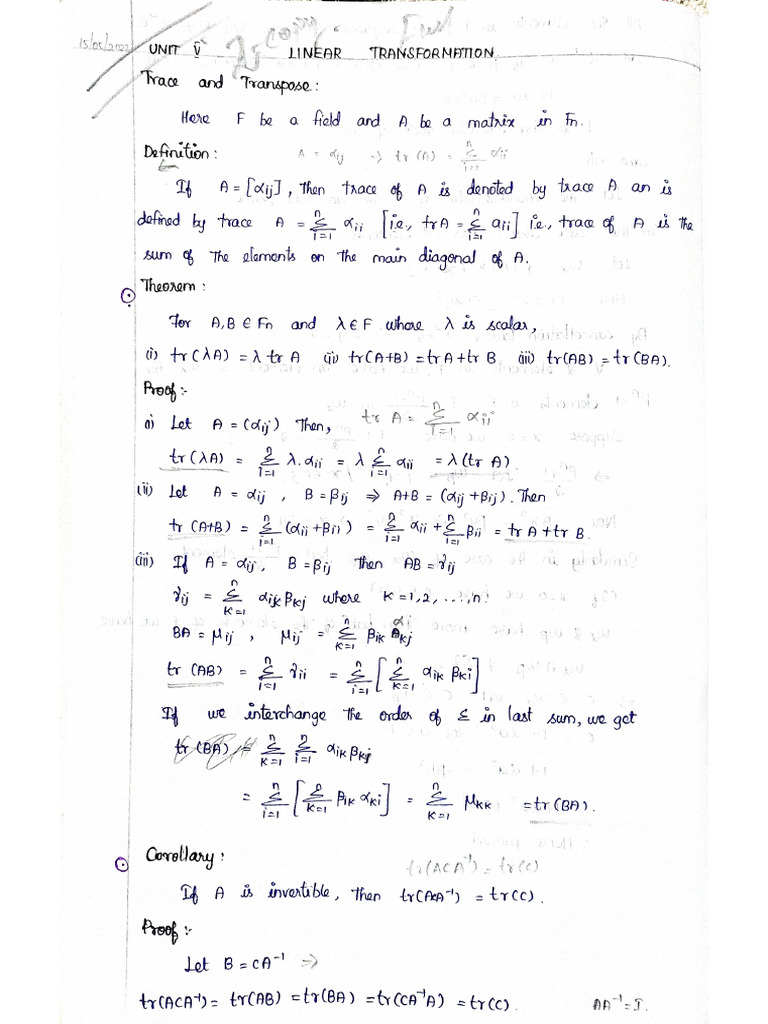 15/05/2022
UNIT V LINEAR TRANSFORMATION
Trace and Transpose:
Here F be a field and A be a matrix in Fn.
Definition: A = αij ⇒ tr(A) = Σ_{i=1}^{n} αii
If A = [αij], then trace of A is denoted by trace A an is
defined by trace A = Σ_{i=1}^{n} αii [i.e., trA = Σ_{i=1}^{n} aii] i.e., trace of A is the
sum of the elements on the main diagonal of A.
Theorem:
For A,B ∈ Fn and λ∈F where λ is scalar,
(i) tr(λA) = λ tr A (ii) tr(A+B) = tr A + tr B (iii) tr(AB) = tr(BA).
Proof:-
(i) Let A = (αij) Then, tr A = Σ_{i=1}^{n} αii
tr(λA) = Σ_{i=1}^{n} λ.αii = λ Σ_{i=1}^{n} αii = λ(tr A).
(ii) Let A = αij , B = βij ⇒ A+B = (αij + βij). Then
tr(A+B) = Σ_{i=1}^{n} (αii + βii) = Σ_{i=1}^{n} αii + Σ_{i=1}^{n} βii = tr A + tr B.
(iii) If A = αij, B = βij then AB = γij
γij = Σ_{K=1}^{n} αik βkj where K = 1,2,...,n.
BA = μij , μij = Σ_{K=1}^{n} βik αkj
tr(AB) = Σ_{i=1}^{n} γii = Σ_{i=1}^{n} [Σ_{K=1}^{n} αik βki]
If we interchange the order of Σ in last sum, we get
tr(BA) = Σ_{K=1}^{n} Σ_{i=1}^{n} αik βki
= Σ_{i=1}^{n} [Σ_{K=1}^{n} βik αki] = Σ_{K=1}^{n} μkk = tr(BA).
Corollary: tr(ACA⁻¹) = tr(C)
If A is invertible, then tr(ACA⁻¹) = tr(C).
Proof:-
Let B = CA⁻¹ ⇒
tr(ACA⁻¹) = tr(AB) = tr(BA) = tr(CA⁻¹A) = tr(C). AA⁻¹ = I.